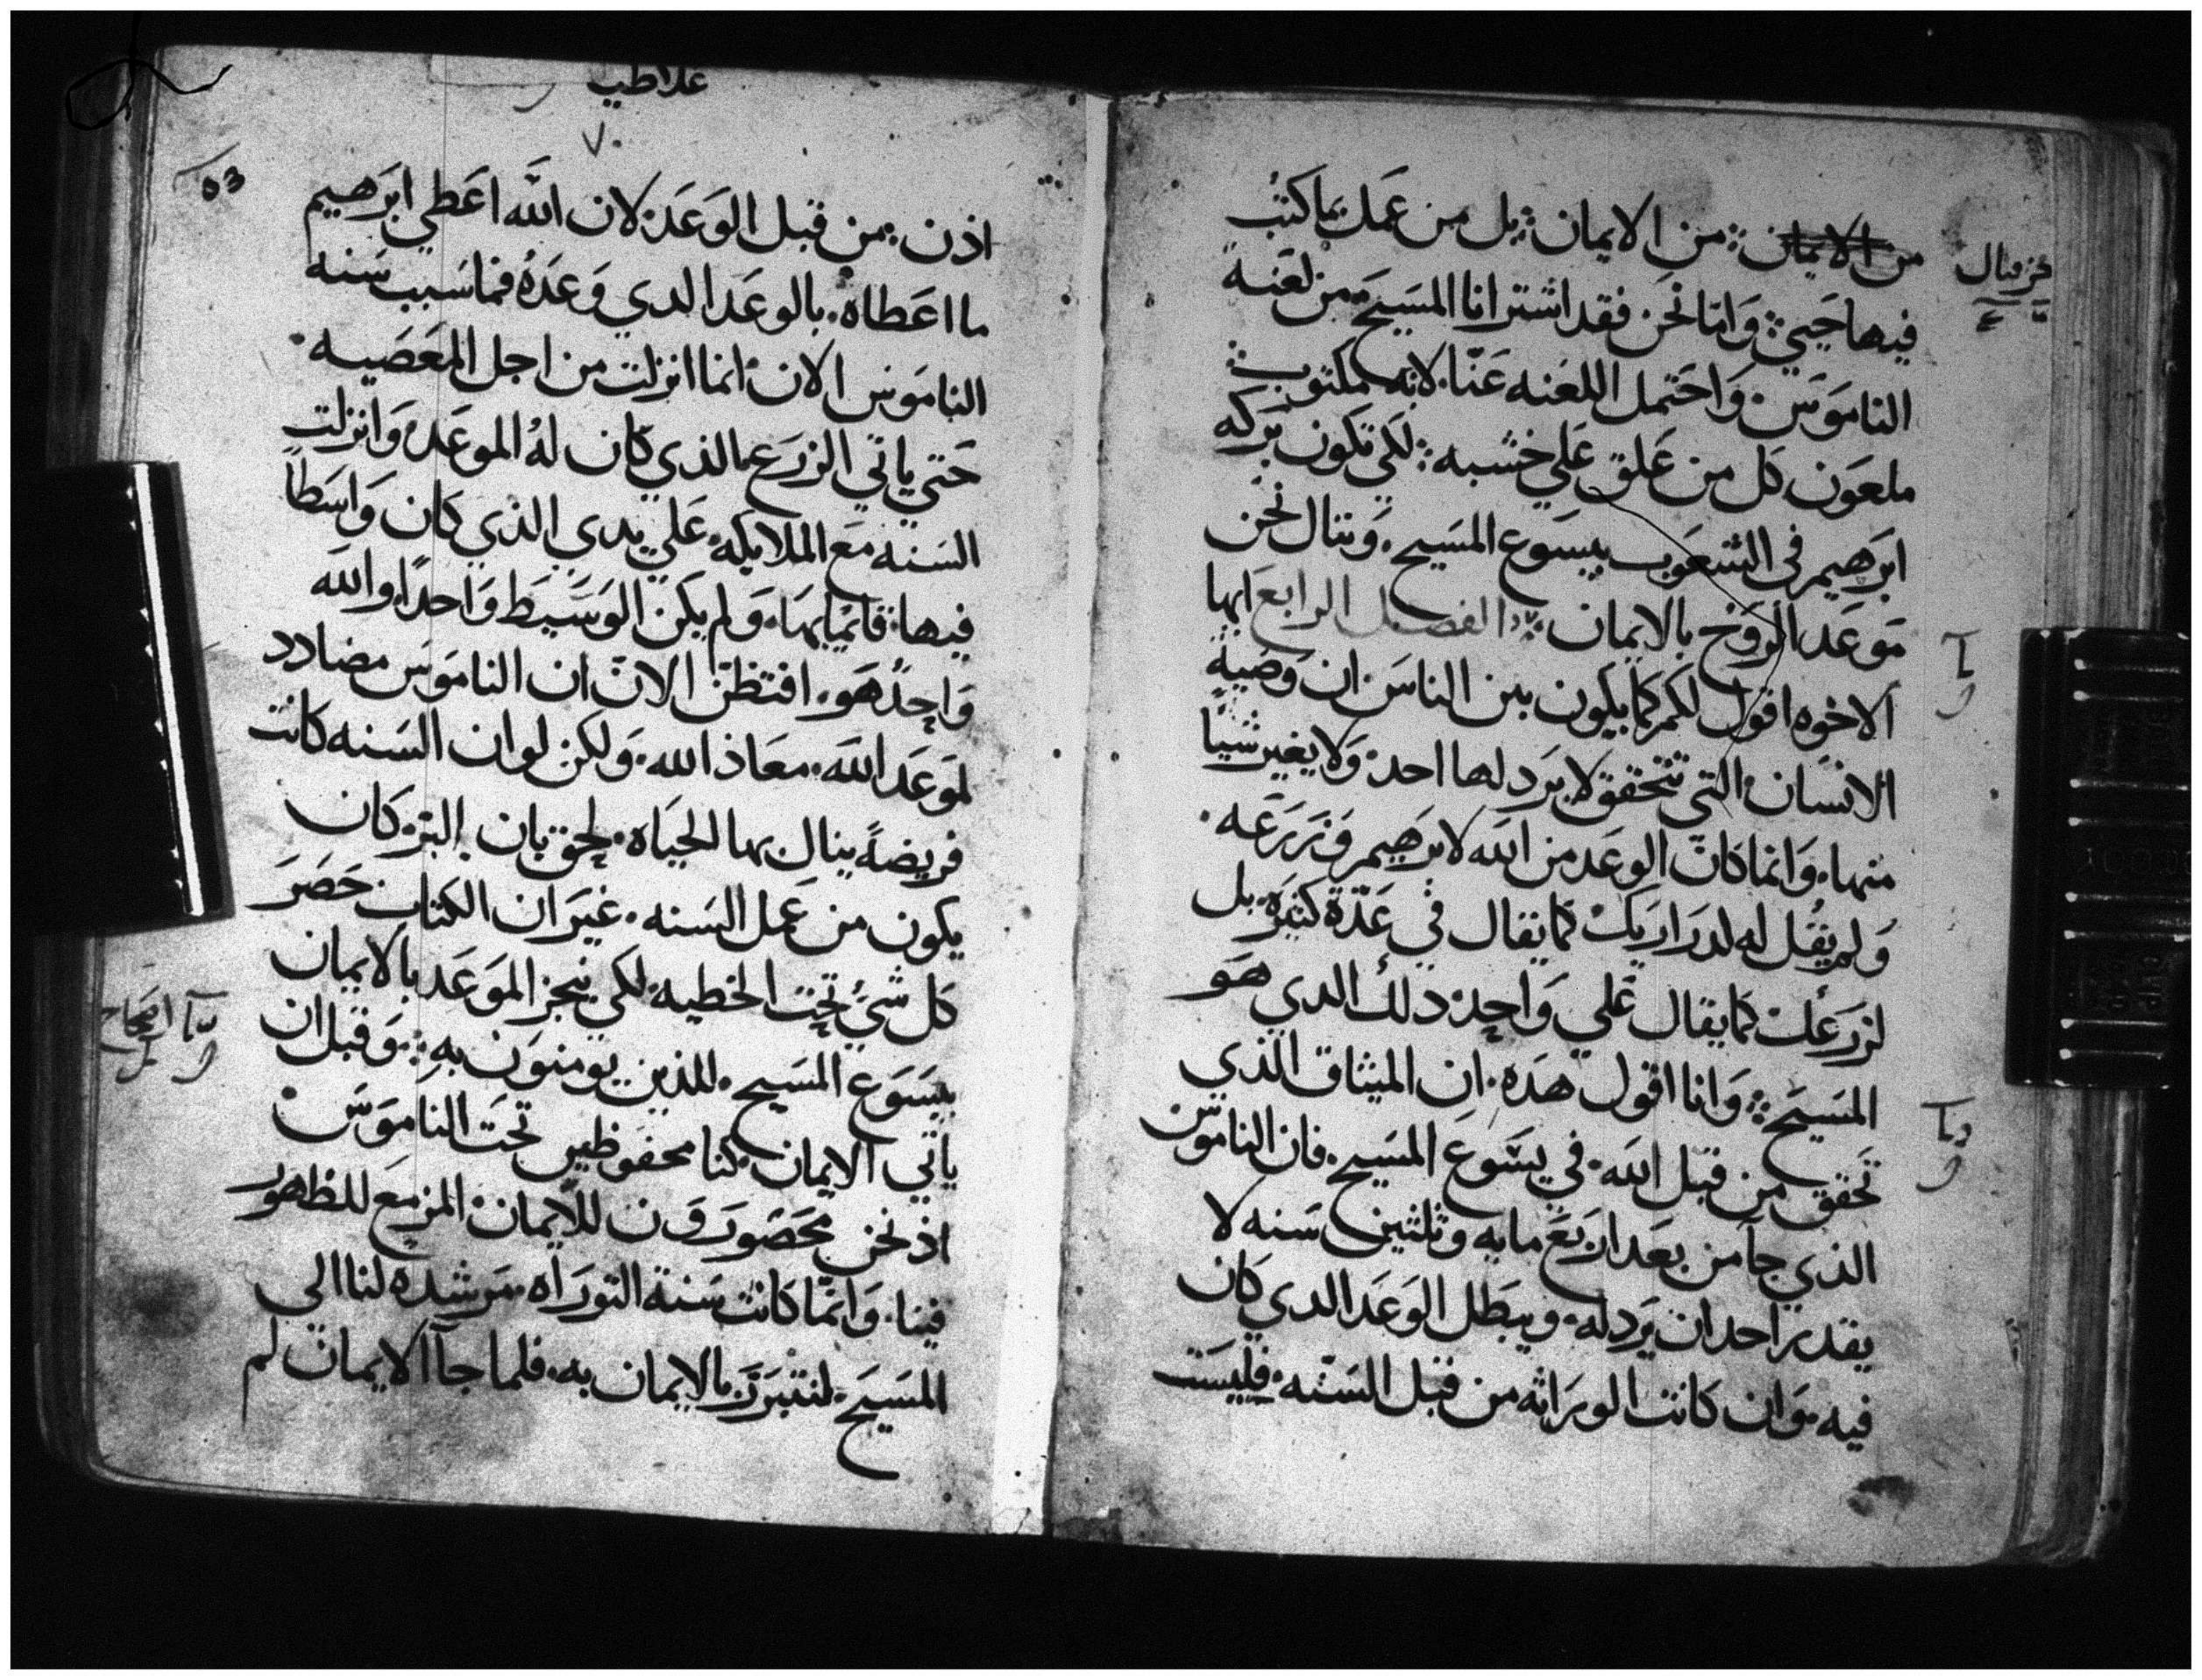 من الايمان ܀ من الايمان ܀ بل من عمل بما كتب
حزقيال
فيها حيي ܀ وَامّا نحن فقد اشترانا المسَيحَ من لعَنة
النامَوَسَ وَاحَتمل اللعَنه عَنّا لانه مكتوب
ملعَون كل من عَلق عَلي خشبه ܀ لكي تكون بَركه
ابرَهيم في الشعَوب بيسَوع المسَيح وَننال نحَن
مَوعَد الروَح بالايمان ܀ الفصل الرابع ايها
الاخوه اقول لكم كما يكون بين الناسَ ان وَصَية
الانسَان التي تتحقق لا يرَد لها احد وَلا يغير شيًا
منها وَانما كان الوعَد من الله لابرَهيم وَزرَعَه
وَلم يقُل له لدرَاريك كما يقال في عَدّة كثيرَه بل
لزرَعَك كما يقال عَلي وَاحِد ذلك الدي هَو
المسَيحَ ܀ وَانا اقول هدَه ان الميثاق الذي
تحَقق من قبل الله في يسَوعَ المسَيح فان النامَوس
الذي جآ من بعَد ارَبعَ مايه وَثلثين سَنه لا
يقدر احد ان يَرد له ويبطَل الوَعَد الدي كان
فيه وَان كانت الورَاثه من قبل السَنّه فليسَت
غلاطيه
٧٠
٥٣
اذن من قبل الوَعَد لان الله اعَطي ابرَهيم
ما اعَطاه بالوعَد الدي وَعَدهُ فما سَبب سَنه
النامَوسَ الان انما انزلت من اجل المعَصَيه
حَتي ياتي الزرَع الذي كان لهُ الموعَد وَانزلت
السَنه مَع الملايكه عَلي يدي الذي كان وَاسَطاً
فيها قايمًا بها وَلم يكن الوَسَيط وَاحدًا والله
وَاحِدٌ هَو افتظنّ الان ان النامَوسَ مضادد
لموَعَد الله معَاذ الله وَلكن لو ان السَنه كانت
فريضةً ينال بها الحيَاه لحق بان البرّ كان
يكون من عَمل السَنه غيَر ان الكتاب حَصَرَ
كل شيُ تحَت الخطيه لكي ينجز المَوعَد بالايمان
بيسَوَع المسَيح للذين يومنوَن به ܀ وَقبل ان
اصحاح
ياتي الايمان كنا محفوَظين تحَت النامَوَسَ
اذ نحَن محَصَورَون للايمان المزمع للظهَور
فينا وَانمّا كانت سَنة التورَاه مَرشده لنا الي
المسَيحَ لنتبرَرَ بالايمان به فلما جآ الايمان لم